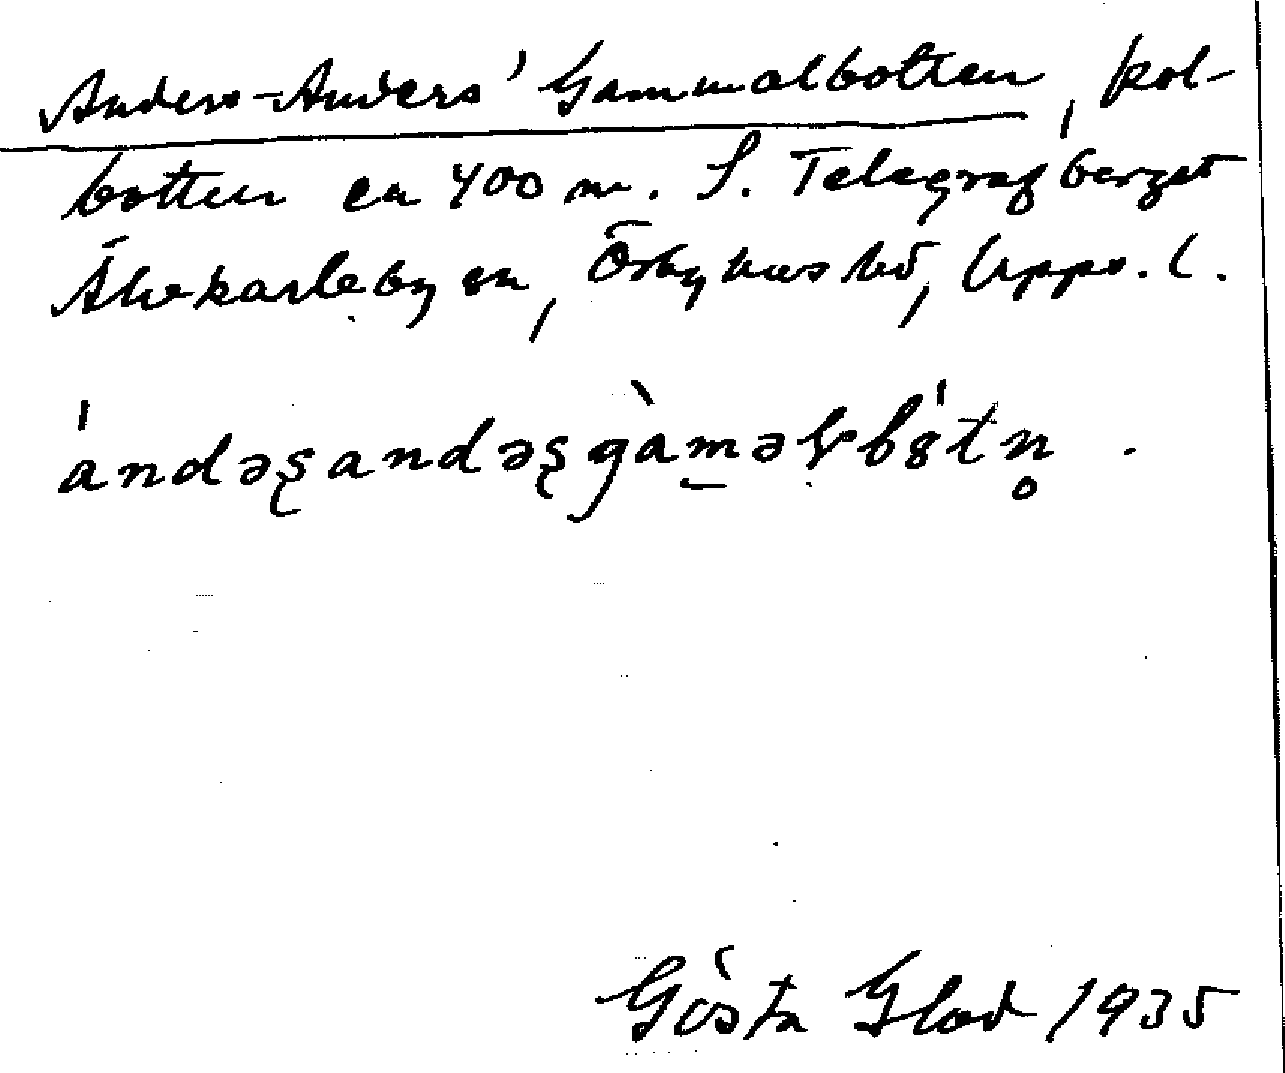 Anders-Anders' Gammalbotten, kol-
botten ca 400 m. S. Telegrafberget
Älvkarleby sn, Örbyhus hd, Upps. l.
ándəʂandəʂgàm̲əɽbɔ́tn̥.
Gösta Glad 1935